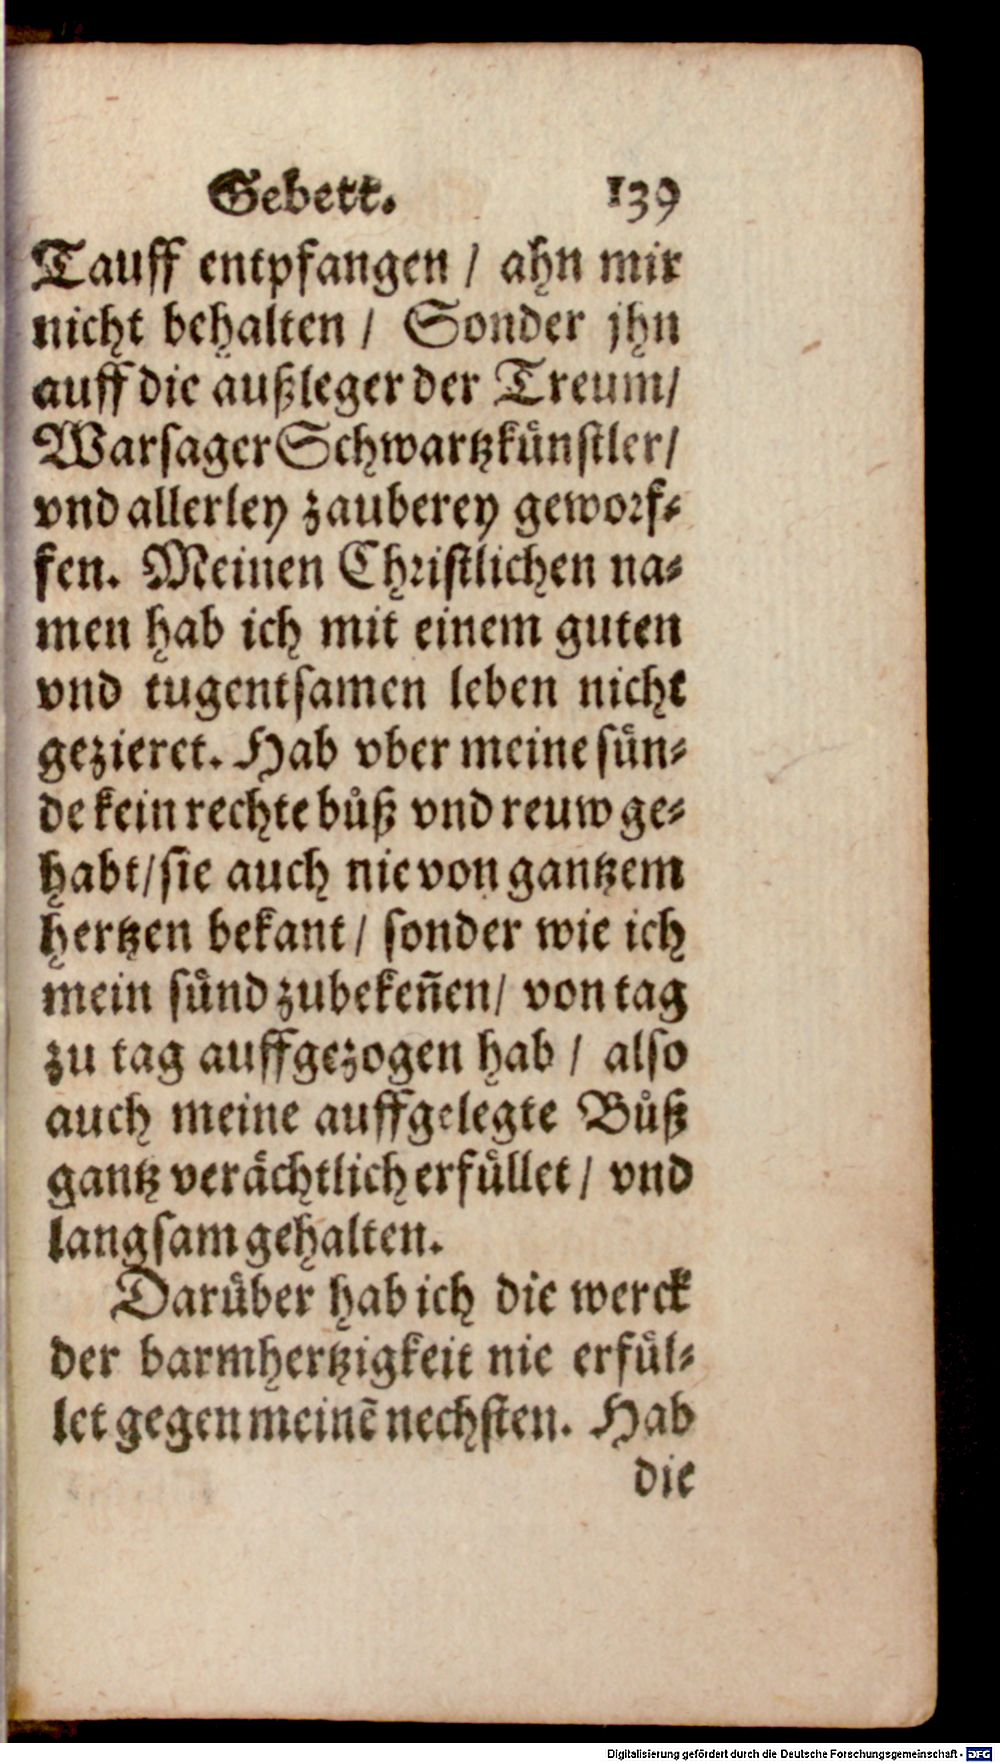 Gebett. 139
Tauff entpfangen / ahn mir
nicht behalten / Sonder jhn
auff die außleger der Treum/
Warsager Schwartzkünstler/
vnd allerley zauberey geworf-
fen. Meinen Christlichen na-
men hab ich mit einem guten
vnd tugentsamen leben nicht
gezieret. Hab vber meine sün-
de kein rechte bůß vnd reuw ge-
habt/sie auch nie von gantzem
hertzen bekant / sonder wie ich
mein sünd zubekeñen/ von tag
zu tag auffgezogen hab / also
auch meine auffgelegte Bůß
gantz verächtlich erfüllet / vnd
langsam gehalten.
Darüber hab ich die werck
der barmhertzigkeit nie erfül-
let gegen meinē nechsten. Hab
die
Digitalisierung gefördert durch die Deutsche Forschungsgemeinschaft - DFG